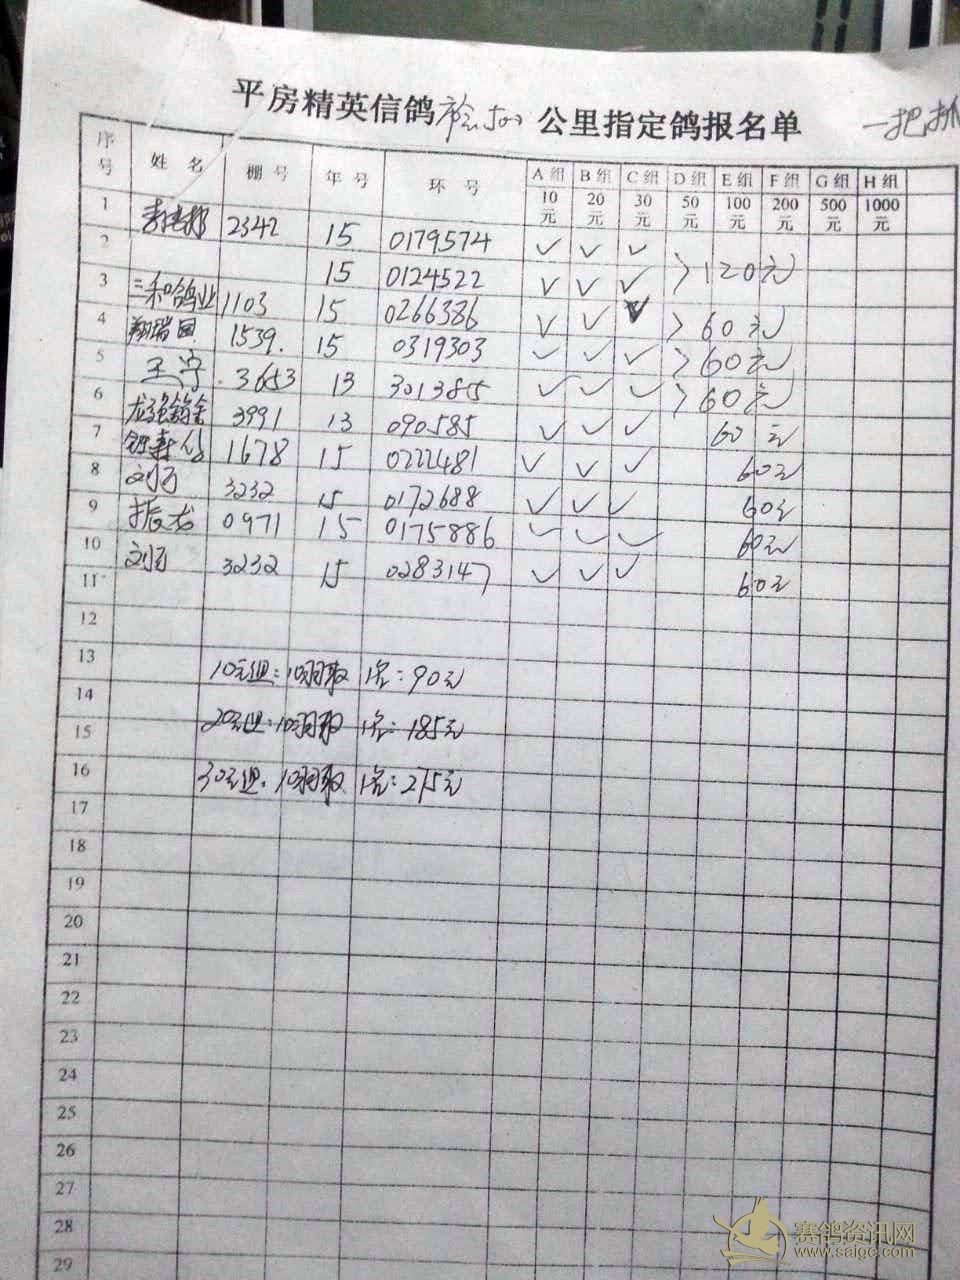 平房精英信鸽 500 公里指定鸽报名单 一把抓
序号 姓名 棚号 年号 环号 A组 B组 C组 D组 E组 F组 G组 H组
10元 20元 30元 50元 100元 200元 500元 1000元
1 2342 15 0179574 ✓ ✓ ✓
2 15 0124522 ✓ ✓ ✓ >120元
3 三和鸽业 1103 15 0266386 ✓ ✓ ✓ >60元
4 翔瑞园 1539. 15 0319303 ✓ ✓ ✓ >60元
5 王宁 3653 13 3013855 ✓ ✓ ✓ >60元
6 3991 13 090585 ✓ ✓ ✓ 60元
7 1678 15 0222481 ✓ ✓ ✓ 60元
8 刘 3232 15 0172688 ✓ ✓ ✓ 60元
9 振龙 0971 15 0175886 ✓ ✓ ✓ 60元
10 刘 3232 15 0283147 ✓ ✓ ✓ 60元
11
12
13 10元组:10羽取1名:90元
14
15 20元组:10羽取1名:185元
16 30元组:10羽取1名:275元
17
18
19
20
21
22
23
24
25
26
27
28
29
赛鸽资讯网
www.saige.com